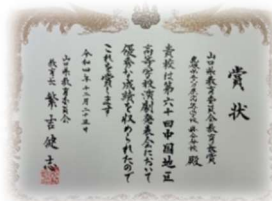 賞状
山口県教育委員会教育長賞
殿
貴校は第六十回中国地区
高等学校演劇発表会において
優秀な成績を収められたので
これを賞します
令和四年十二月二十五日
山口県教育委員会
教育長 繁吉健志